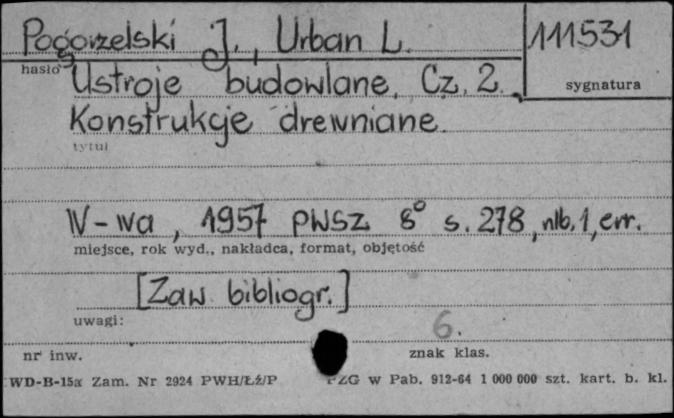 Pogorzelski J., Urban L.
111531
hasło
sygnatura
Ustroje budowlane. Cz. 2.
Konstrukcje drewniane.
tytuł
W-wa, 1957 PWSZ 8° s. 278, nlb. 1, err.
miejsce, rok wyd., nakładca, format, objętość
[Zaw. bibliogr.]
uwagi:
6.
nr inw.
znak klas.
WD-B-15a Zam. Nr 2924 PWH/Łź/P PZG w Pab. 912-64 1 000 000 szt. kart. b. kl.